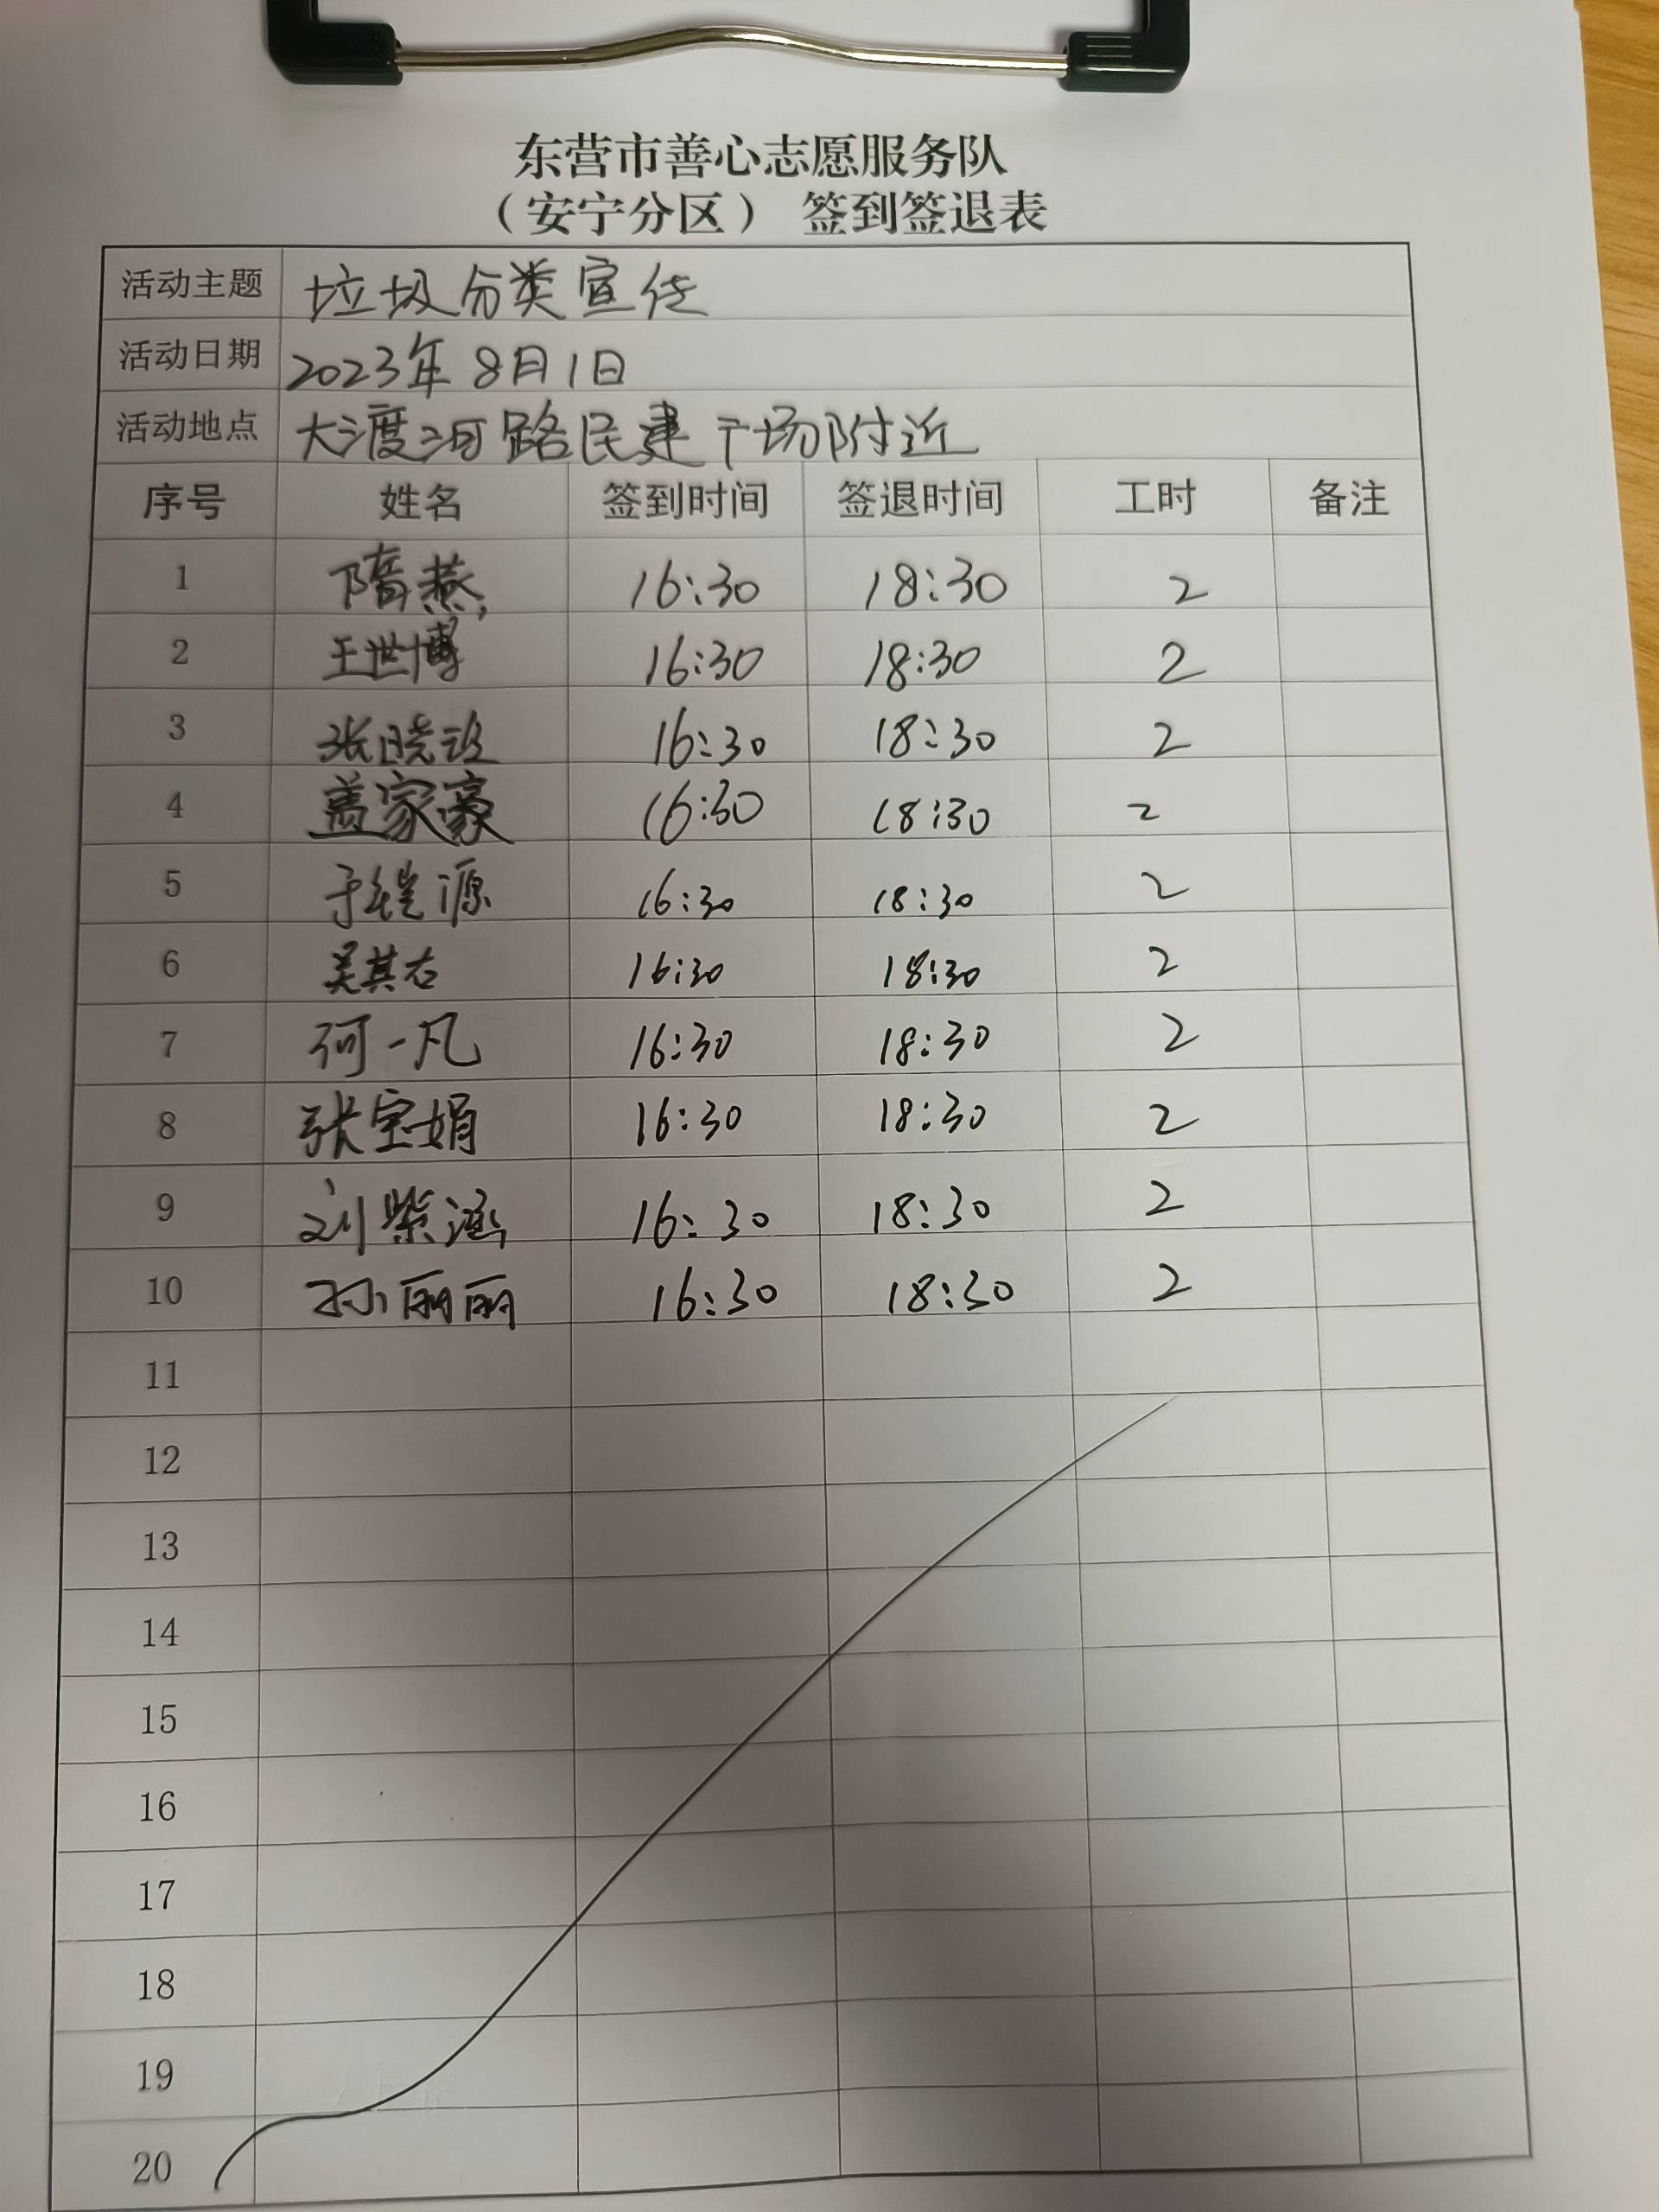 东营市善心志愿服务队
（安宁分区） 签到签退表
活动主题 垃圾分类宣传
活动日期 2023年8月1日
活动地点 大渡河路民建广场附近
序号 姓名 签到时间 签退时间 工时 备注
1 隋燕 16:30 18:30 2
2 王世博 16:30 18:30 2
3 张晓 16:30 18:30 2
4 盖家豪 16:30 18:30 2
5 于 源 16:30 18:30 2
6 吴其右 16:30 18:30 2
7 何一凡 16:30 18:30 2
8 张宝娟 16:30 18:30 2
9 刘紫涵 16:30 18:30 2
10 孙丽丽 16:30 18:30 2
11
12
13
14
15
16
17
18
19
20